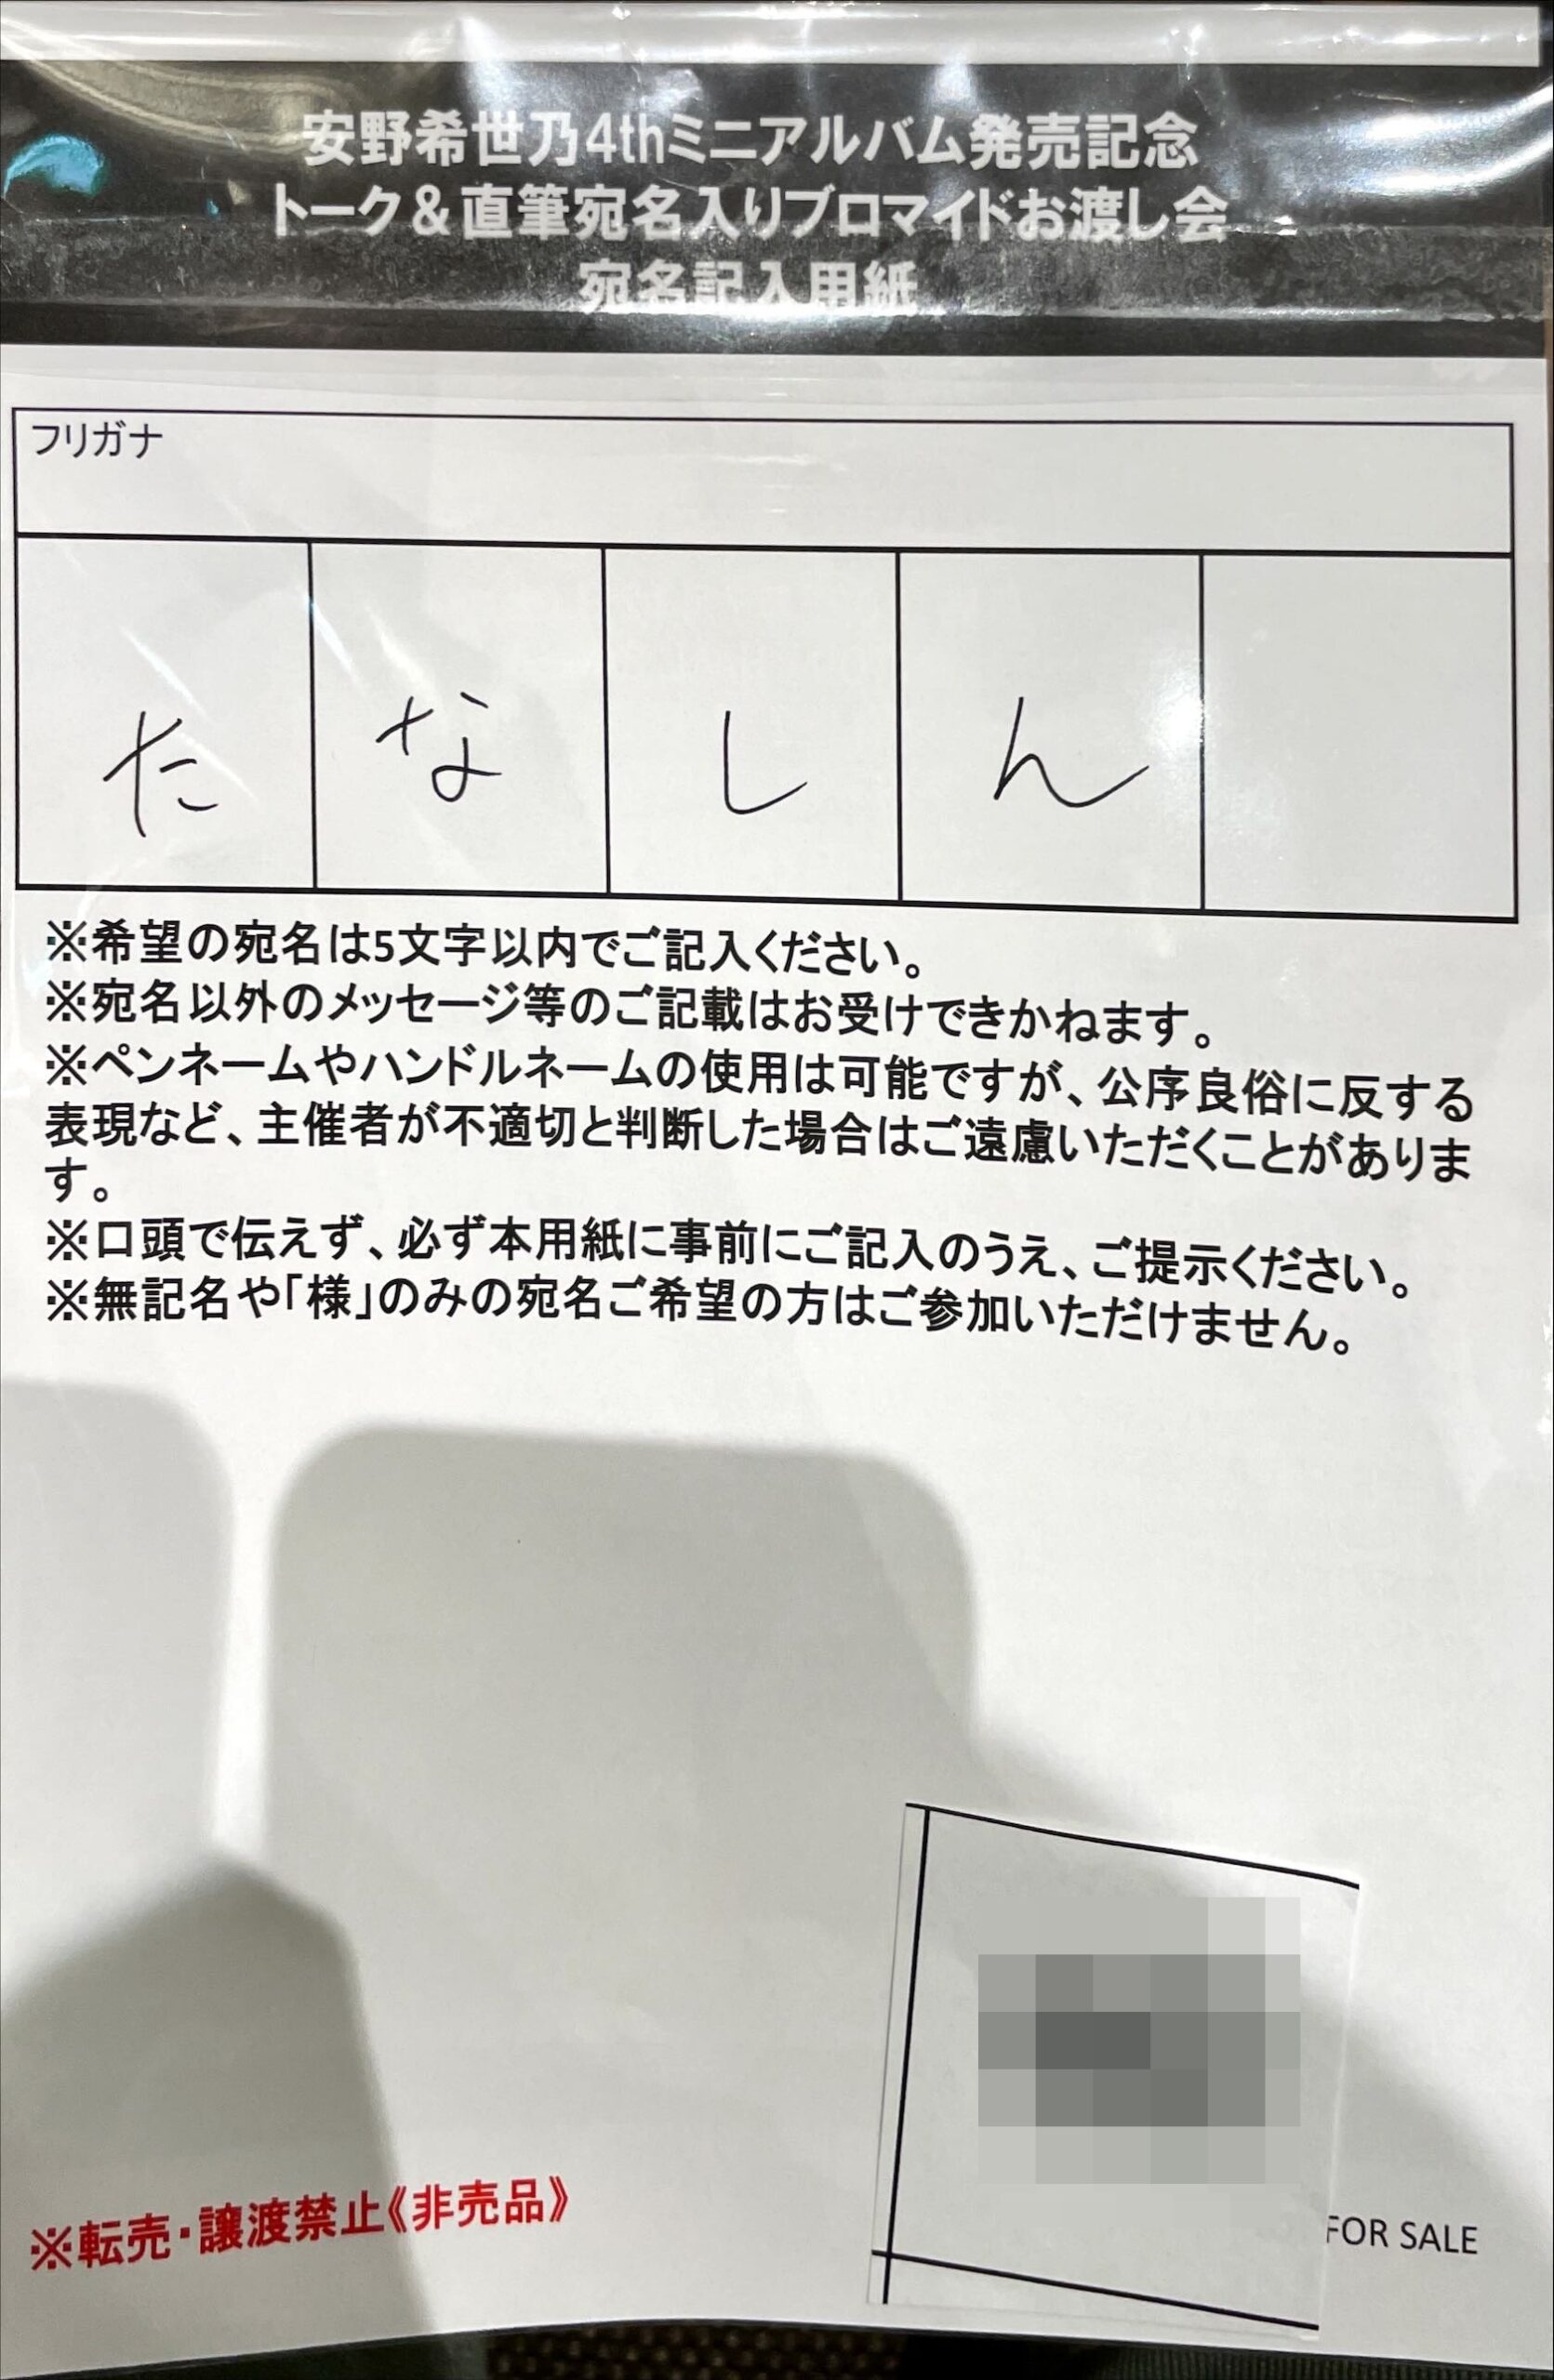 安野希世乃4thミニアルバム発売記念
トーク＆直筆宛名入りブロマイドお渡し会
宛名記入用紙
フリガナ
た な し ん
※希望の宛名は5文字以内でご記入ください。
※宛名以外のメッセージ等のご記載はお受けできかねます。
※ペンネームやハンドルネームの使用は可能ですが、公序良俗に反する
表現など、主催者が不適切と判断した場合はご遠慮いただくことがありま
す。
※口頭で伝えず、必ず本用紙に事前にご記入のうえ、ご提示ください。
※無記名や「様」のみの宛名ご希望の方はご参加いただけません。
※転売・譲渡禁止《非売品》
FOR SALE